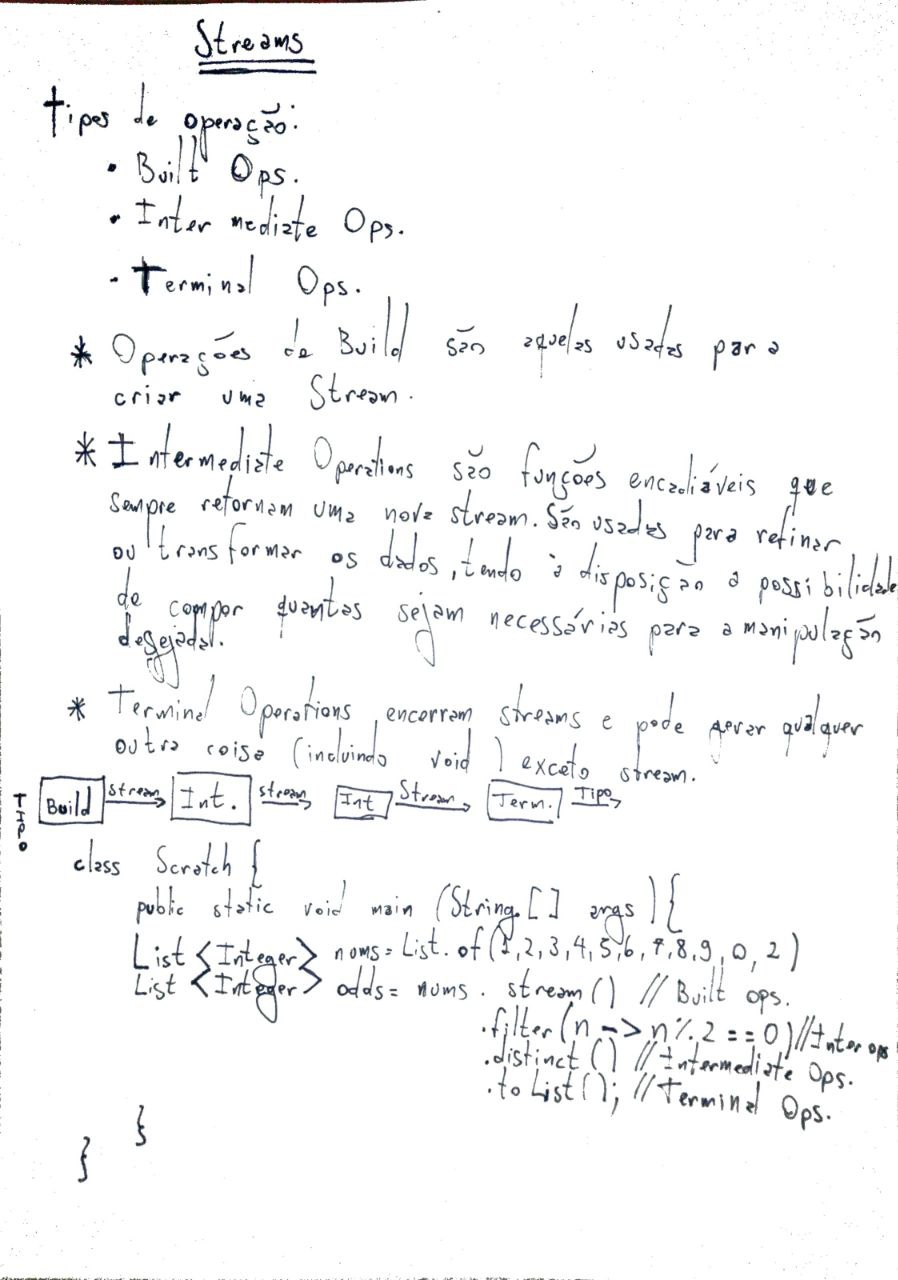 Streams
tipos de operação:
• Built Ops.
• Inter mediate Ops.
- Terminal Ops.
* Operações de Build são aquelas usadas para
criar uma Stream.
* Intermediate Operations são funções encadiáveis que
sempre retornam uma nova stream. São usadas para refinar
ou transformar os dados, tendo à disposição a possibilidade
de compor quantas sejam necessárias para a manipulação
desejada.
* Terminal Operations encerram streams e pode gerar qualquer
outra coisa (incluindo void) exceto stream.
Build stream Int. stream Int Stream Term. Tipo
class Scratch {
public static void main (String.[] args ) {
List <Integer> nums = List. of (1,2,3,4,5,6,7,8,9,0,2)
List <Integer> odds = nums . stream () // Built ops.
.filter (n -> n % 2 == 0) // Inter ops
.distinct () // Intermediate Ops.
.to List (); // Terminal Ops.
}
}